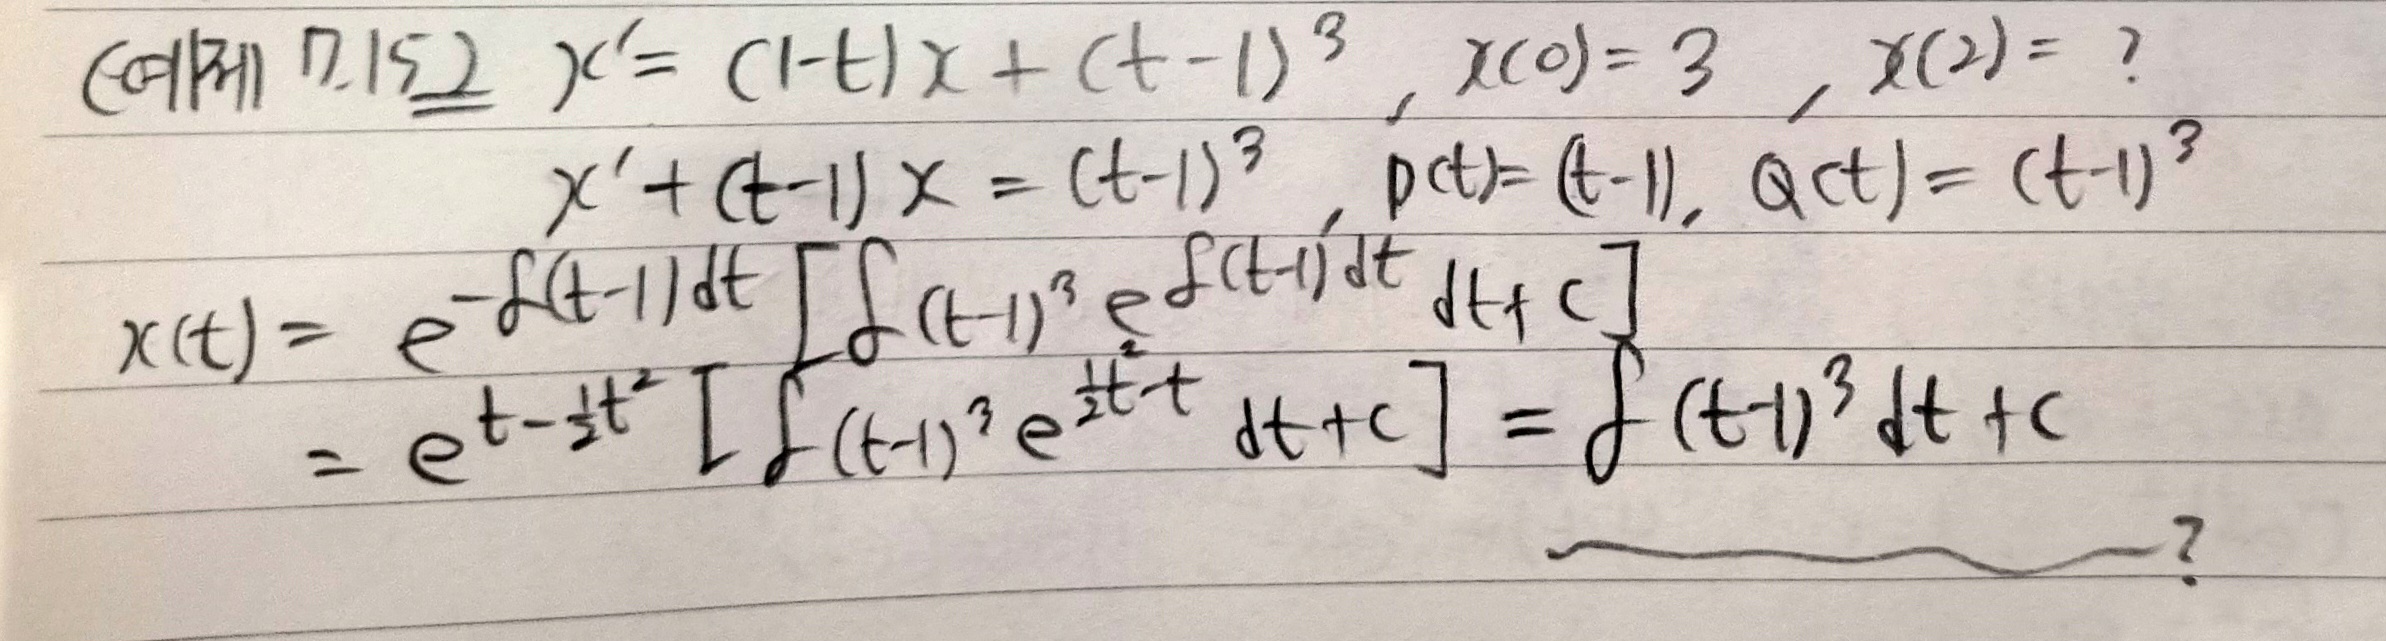 (예제 7.15) x' = (1-t)x + (t-1)³, x(0)=3, x(2)=?
x' + (t-1)x = (t-1)³, p(t)=(t-1), Q(t)=(t-1)³
x(t) = e^{-∫(t-1)dt} [∫(t-1)³ e^{∫(t-1)dt} dt + c]
= e^{t-½t²} [∫(t-1)³ e^{½t²-t} dt + c] = ∫(t-1)³ dt + c
?